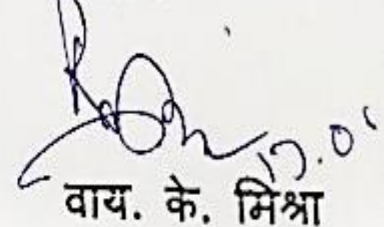 17.01
वाय. के. मिश्रा